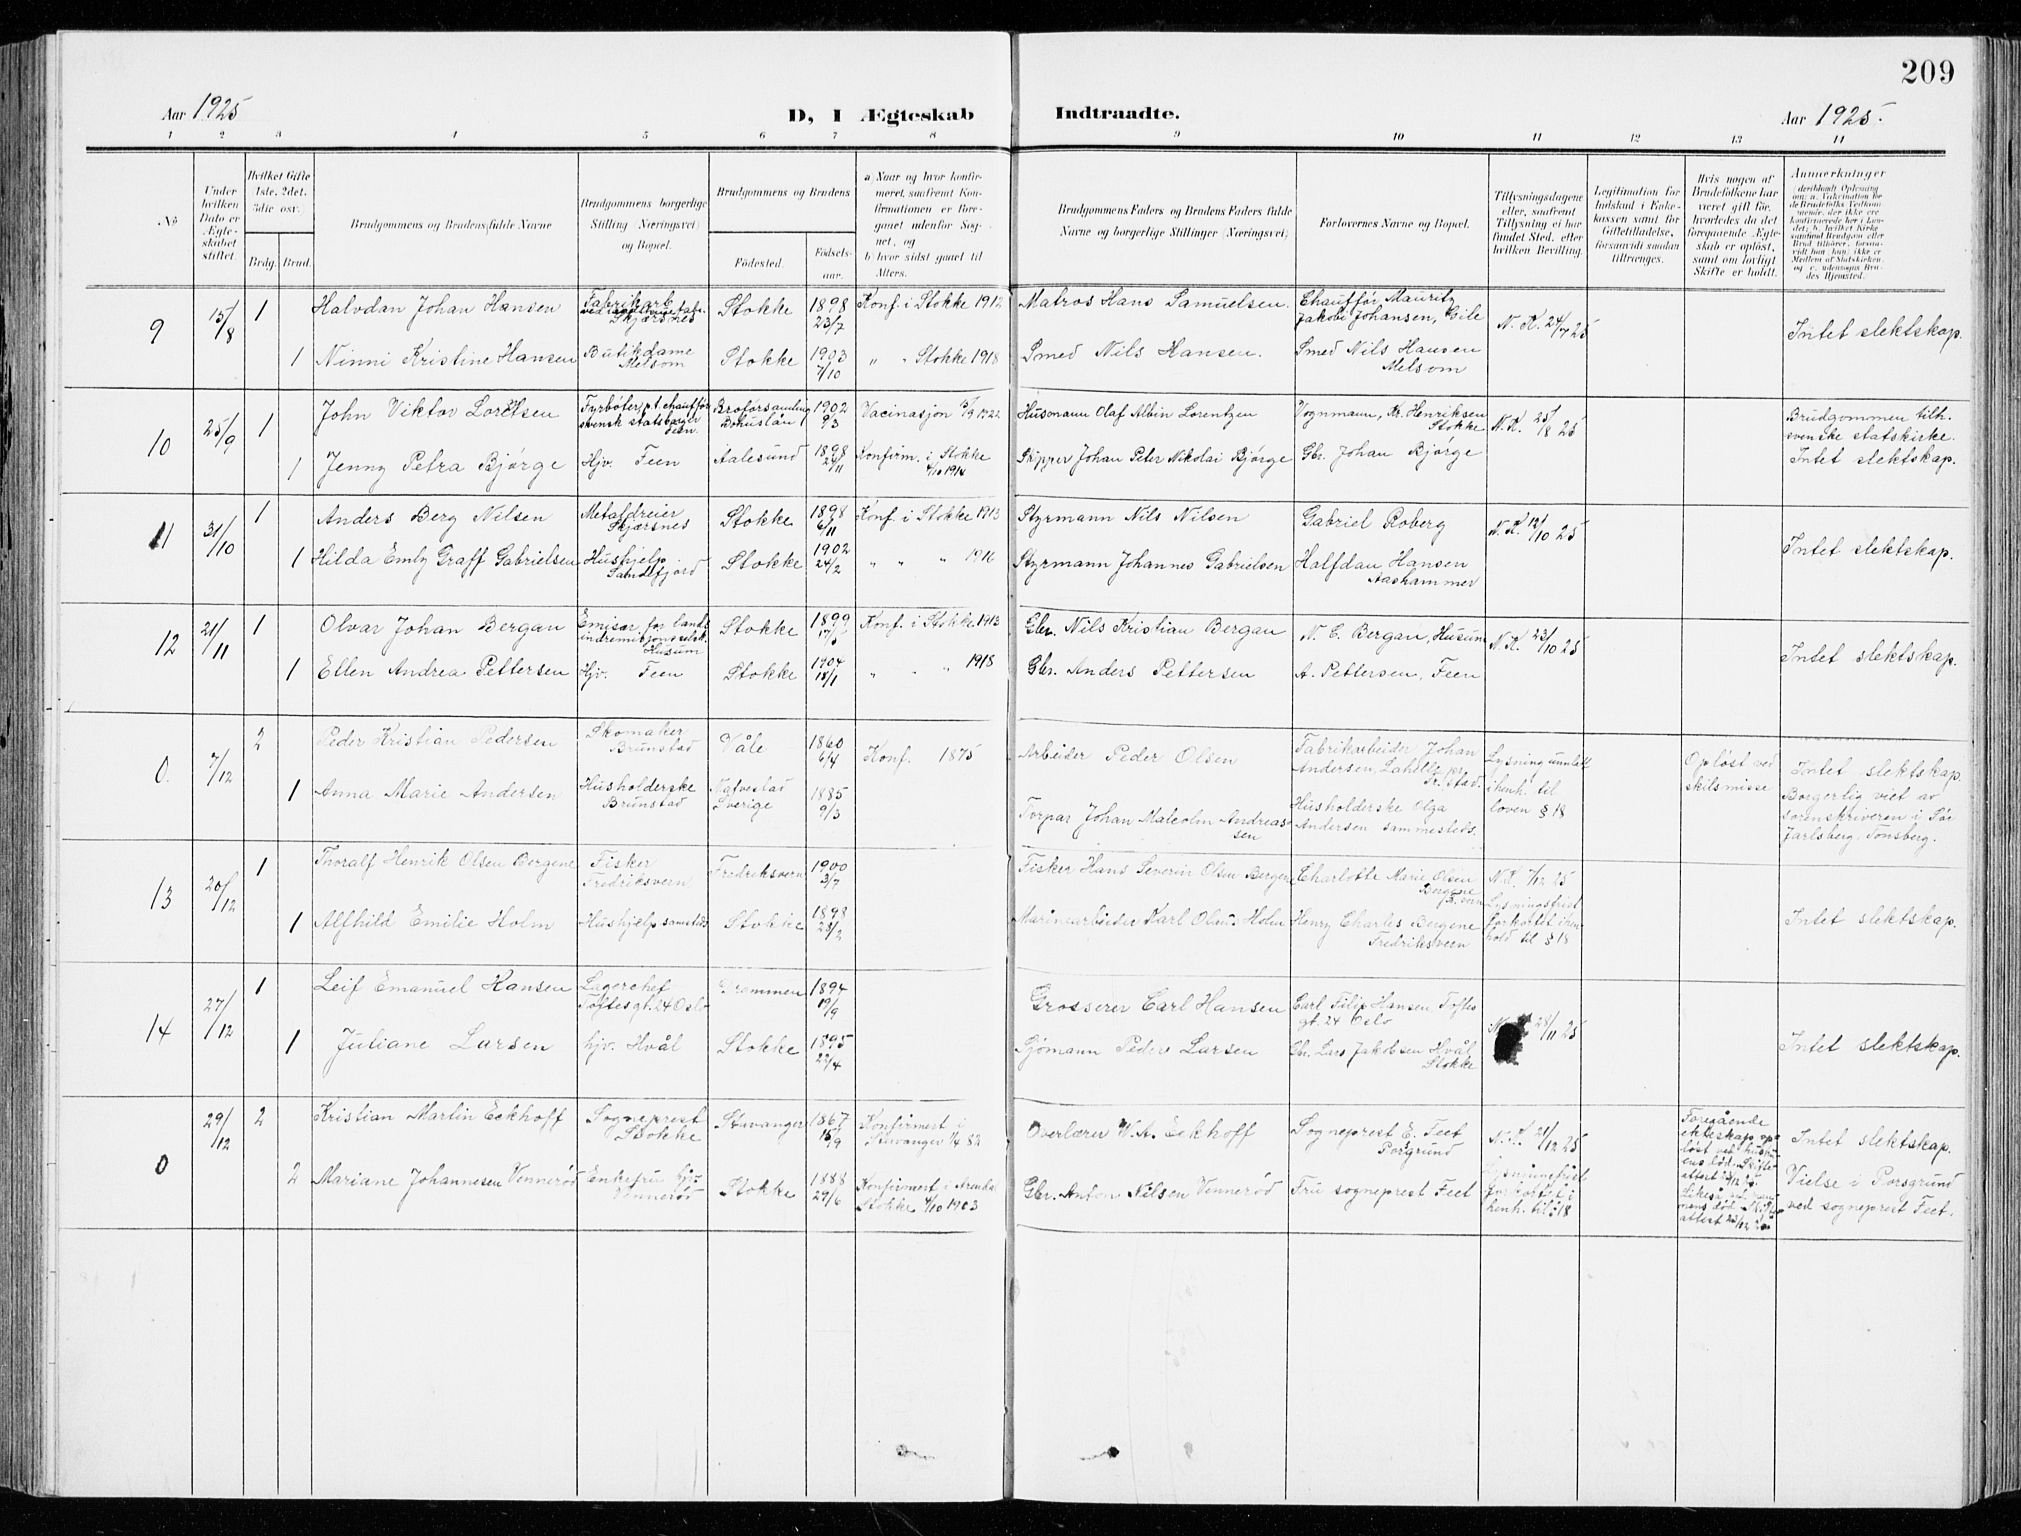 209
Aar 1925
D, I Ægteskab Indtraadte.
Aar 1925.
1 2 3 4 5 6 7 8 9 10 11 12 13 14
No
Under hvilken Dato er Ægteskabet stiftet.
Hvilket Gifte (1ste, 2det, 3die osv.)
Brdg. Brud.
Brudgommens og Brudens fulde Navne
Brudgommens borgerlige Stilling (Næringsvei) og Bopæl.
Brudgommens og Brudens
Fødested.
Fødselsaar.
a) Naar og hvor konfirmeret, saafremt Konfirmationen er foregaaet udenfor Sognet, og
b) hvor sidst gaaet til Alters.
Brudgommens Faders og Brudens Faders fulde Navne og borgerlige Stillinger (Næringsvei)
Forlovernes Navne og Bopæl.
Tillysningsdagene eller, saafremt Tillysning ei har fundet Sted, efter hvilken Bevilling.
Legitimation for Indskud i Enkekassen samt for Giftetilladelse, forsaavidt saadan tiltrænges.
Hvis nogen af Brudefolkene har været gift før, hvorledes da det foregaaende Ægteskab er opløst, samt om lovligt Skifte er holdt.
Anmærkninger
9 15/8 1 Halvdan Johan Hansen Fabrikarb. Skjærsnes Stokke 1898 23/7 Konf. i Stokke 1912 Matros Hans Samuelsen. Chauffør Mauritz Jakobi Johansen, Gile N. K. 24/7 25 Intet slektskap.
1 Ninni Kristine Hansen Butikdame Melsom Stokke 1903 7/10 " " Stokke 1918 Smed Nils Hansen. Smed Nils Hansen Melsom
10 25/9 1 John Viktor Lorentsen Fyrbøter, p.t. chauffør svensk statsborger Feen. Broforsamling Bohuslän 1902 9/3 Vacinasjon 1922 Husmann Olaf Albin Lorentzen Vognmann, Kr. Henriksen Stokke N. K. 25/8 25 Brudgommen tilh. svenske statskirke. Intet slektskap.
1 Jenny Petra Bjørge Hjv. Feen Aalesund 1898 24/11 Konfirm. i Stokke 4/10 1914 Skipper Johan Peter Nikolai Bjørge Gbr. Johan Bjørge
11 31/10 1 Anders Berg Nilsen Metaldreier Skjærsnes Stokke 1898 6/11 Konf. i Stokke 1913 Styrmann Nils Nilsen Gabriel Roberg N. K. 12/10 25 Intet slektskap.
1 Hilda Emly Graff Gabrielsen Hushjelp Sandefjord Stokke 1902 24/2 " " " 1916 Styrmann Johannes Gabrielsen Halfdan Hansen Aashammer
12 21/11 1 Olvar Johan Bergan Emisær for landsindremisjonsselsk. Husum Stokke 1899 17/5 Konf. i Stokke 1913 Gbr. Nils Kristian Bergan N. C. Bergan, Husum N. K. 23/10 25 Intet slektskap.
1 Ellen Andrea Pettersen Hjv. Feen Stokke 1904 18/1 " " " 1918 Gbr. Anders Pettersen A. Pettersen, Feen
0. 7/12 2 Peder Kristian Pedersen Skomaker Brunstad Våle 1860 6/4 Konf. 1875 Arbeider Peder Olsen Fabrikarbeider Johan Andersen, Lahelle pr. Fr.stad. Lysning unnlatt i henh. til loven § 18 Opløst ved skilsmisse Intet slektskap. Borgerlig viet av sorenskriveren i Sør Jarlsberg, Tønsberg.
1 Anna Marie Andersen Husholderske Brunstad Sverige 1885 9/3 Torpar Johan Malcolm Andreassen Husholderske Olga Andersen sammesteds.
13 20/12 1 Thoralf Henrik Olsen Bergene Fisker Fredriksvern Fredriksvern 1900 3/7 Fisker Hans Severin Olsen Bergene Charlotte Marie Olsen Bergene N. K. 7/12 25 Lysningsfrist forkortet i henhold til § 18 Intet slektskap.
1 Alfhild Emilie Holm Hushjelp sammesteds Stokke 1898 23/2 Marinearbeider Karl Olaus Holm Henry Charles Bergene Fredriksvern
14 27/12 1 Leif Emanuel Hansen Lagerchef Toftesgt. 24 Oslo Drammen 1894 19/9 Grosserer Carl Hansen Carl Filip Hansen Toftesgt. 24 Oslo 28/11 25 Intet slektskap.
1 Juliane Larsen hjv. Hvål Stokke 1895 22/4 Sjømann Peder Larsen Gbr. Lars Jakobsen Hvål Stokke
0 29/12 2 Kristian Martin Eckhoff Sogneprest Stokke Stavanger 1867 15/9 Konfirmert i Stavanger 1/4 82 Overlærer W. A. Eckhoff Sogneprest E. Feet Porsgrund N. K. 21/12 25 Lysningsfrist forkortet i henh. til § 18 Foregående ekteskap opløst ved hustruens død. Intet slektskap. Vielse i Porsgrund ved sogneprest Feet.
2 Mariane Johannesen Vennerød Enkefru hjv. Vennerød Stokke 1888 29/6 Konfirmert i Arendal Stokke 4/10 1903 Gbr. Anton Nilsen Vennerød Fru sogneprest Feet